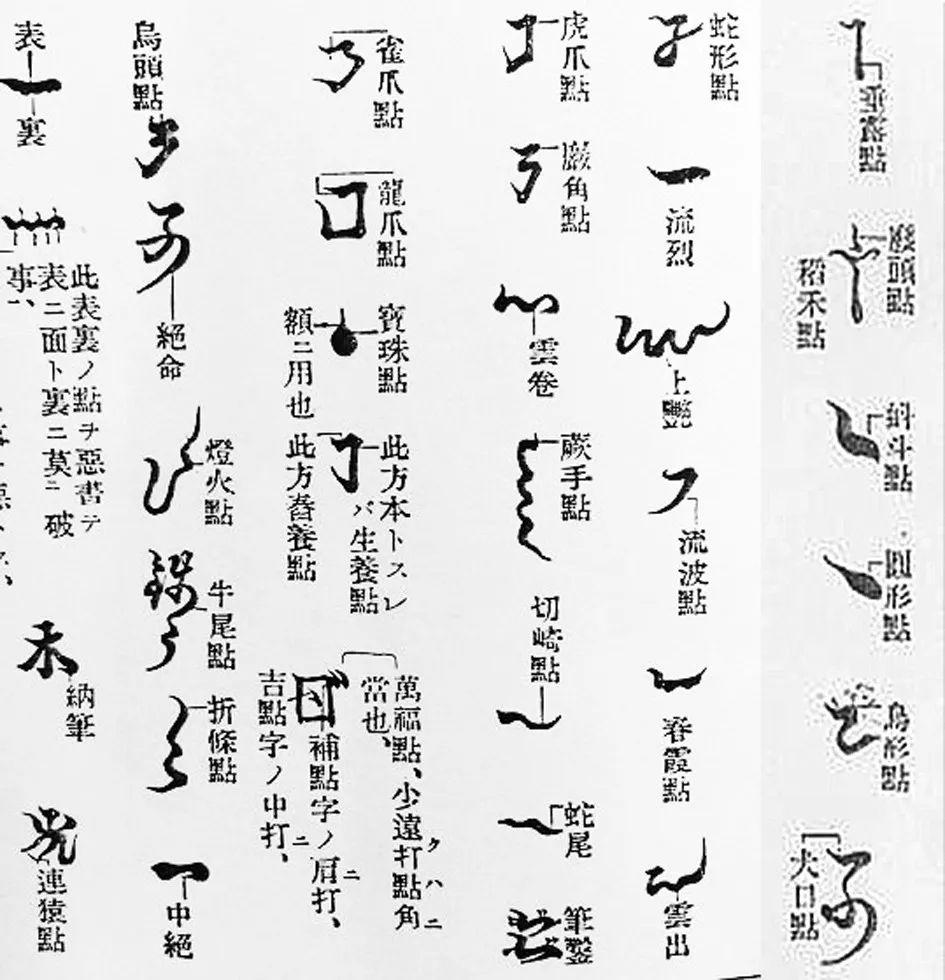 垂露點
發頭點
稻禾點
蚪斗點
圓形點
鳥形點
犬口點
蛇形點
流烈
上艷
流波點
春霞點
雲出
虎爪點
巖角點
雲卷
蕨手點
切崎點
蛇尾
筆鑿
雀爪點
龍爪點
寶珠點
額ニ用也
此方本トスレ
バ生養點
此方春養點
萬福點、少遠打點角
クハニ
當也、
補點字ノ肩ニ打、
吉點字ノ中ニ打、
烏頭點
絕命
燈火點
牛尾點
折條點
中絕
表
裏
此表裏ノ點ヲ惡書テ
表ニ面ト裏ニ莫ニ破
事ニ、
納筆
連猿點